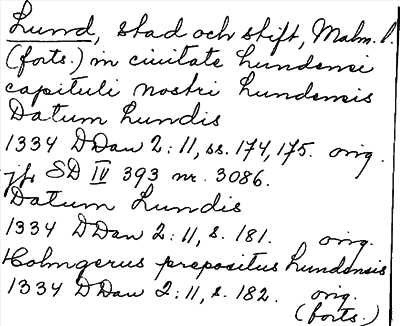 Lund, stad och stift, Malm. l.
(forts.) in civitate Lundensi
capituli nostri Lundensis
Datum Lundis
1334 DDan 2:11, ss. 174, 175. orig.
jfr SD IV 393 nr. 3086.
Datum Lundis
1334 DDan 2:11, s. 181. orig.
Holmgerus prepositus Lundensis
1334 DDan 2:11, s. 182. orig.
(forts.)